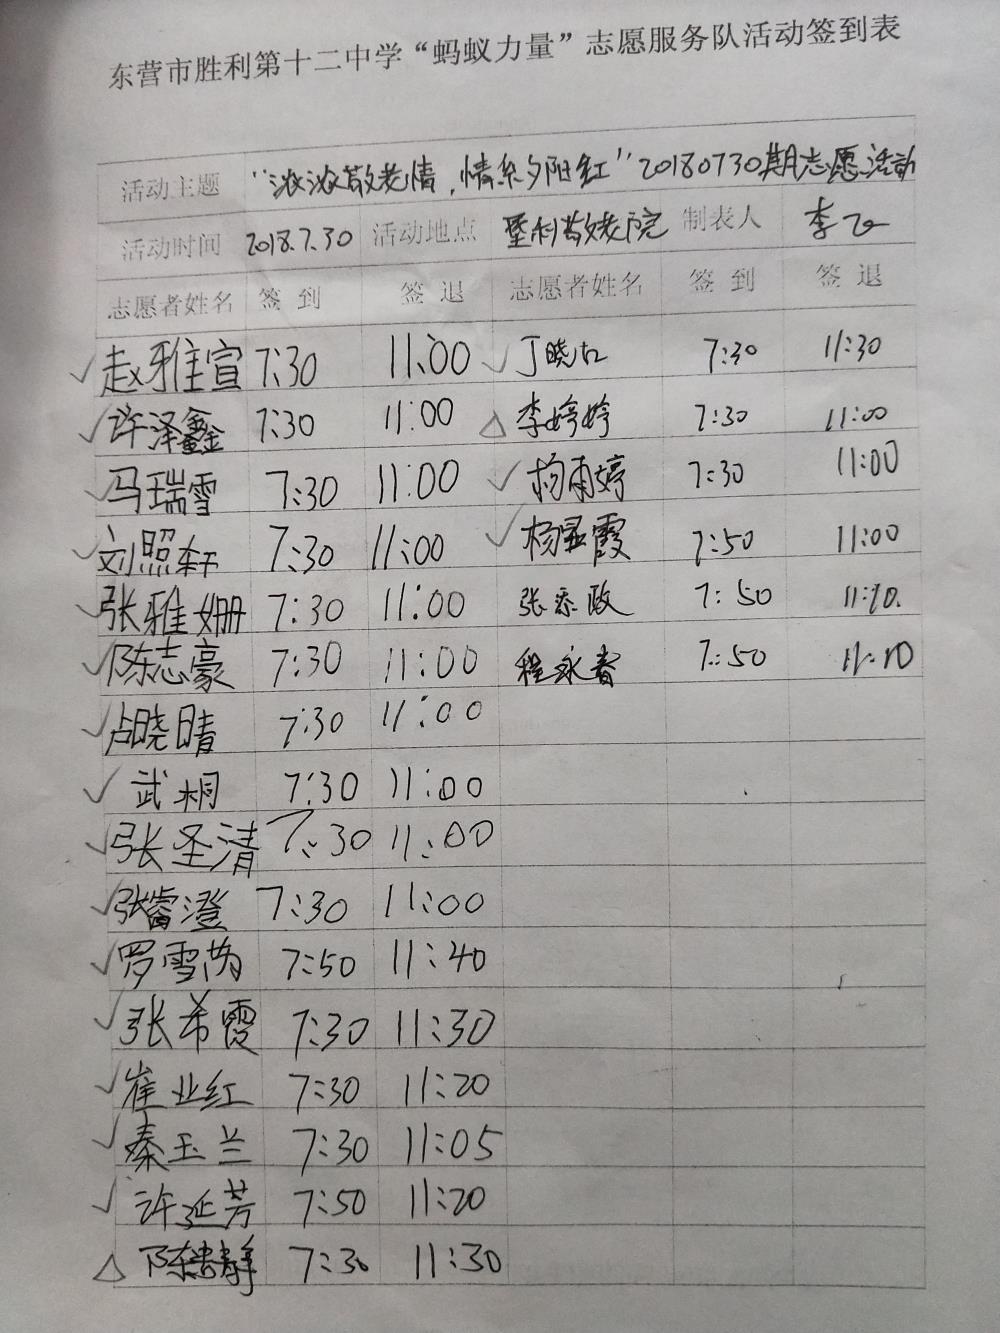 东营市胜利第十二中学“蚂蚁力量”志愿服务队活动签到表
活动主题 “浓浓敬老情，情系夕阳红”20180730期志愿活动
活动时间 2018.7.30 活动地点 垦利敬老院 制表人 李
志愿者姓名 签到 签退 志愿者姓名 签到 签退
✓ 赵雅宣 7:30 11:00 ✓ 丁晓 7:30 11:30
✓ 许泽鑫 7:30 11:00 △ 李婷婷 7:30 11:00
✓ 马瑞雪 7:30 11:00 ✓ 杨雨婷 7:30 11:00
✓ 刘照轩 7:30 11:00 ✓ 杨显霞 7:50 11:00
✓ 张雅姗 7:30 11:00 张政 7:50 11:10.
✓ 陈志豪 7:30 11:00 程永春 7:50 11:10
✓ 卢晓晴 7:30 11:00
✓ 武桐 7:30 11:00
✓ 张圣清 7:30 11:00
✓ 张睿澄 7:30 11:00
✓ 罗雪芮 7:50 11:40
✓ 张希霞 7:30 11:30
✓ 崔业红 7:30 11:20
✓ 秦玉兰 7:30 11:05
✓ 许延芳 7:50 11:20
△ 陈静 7:30 11:30